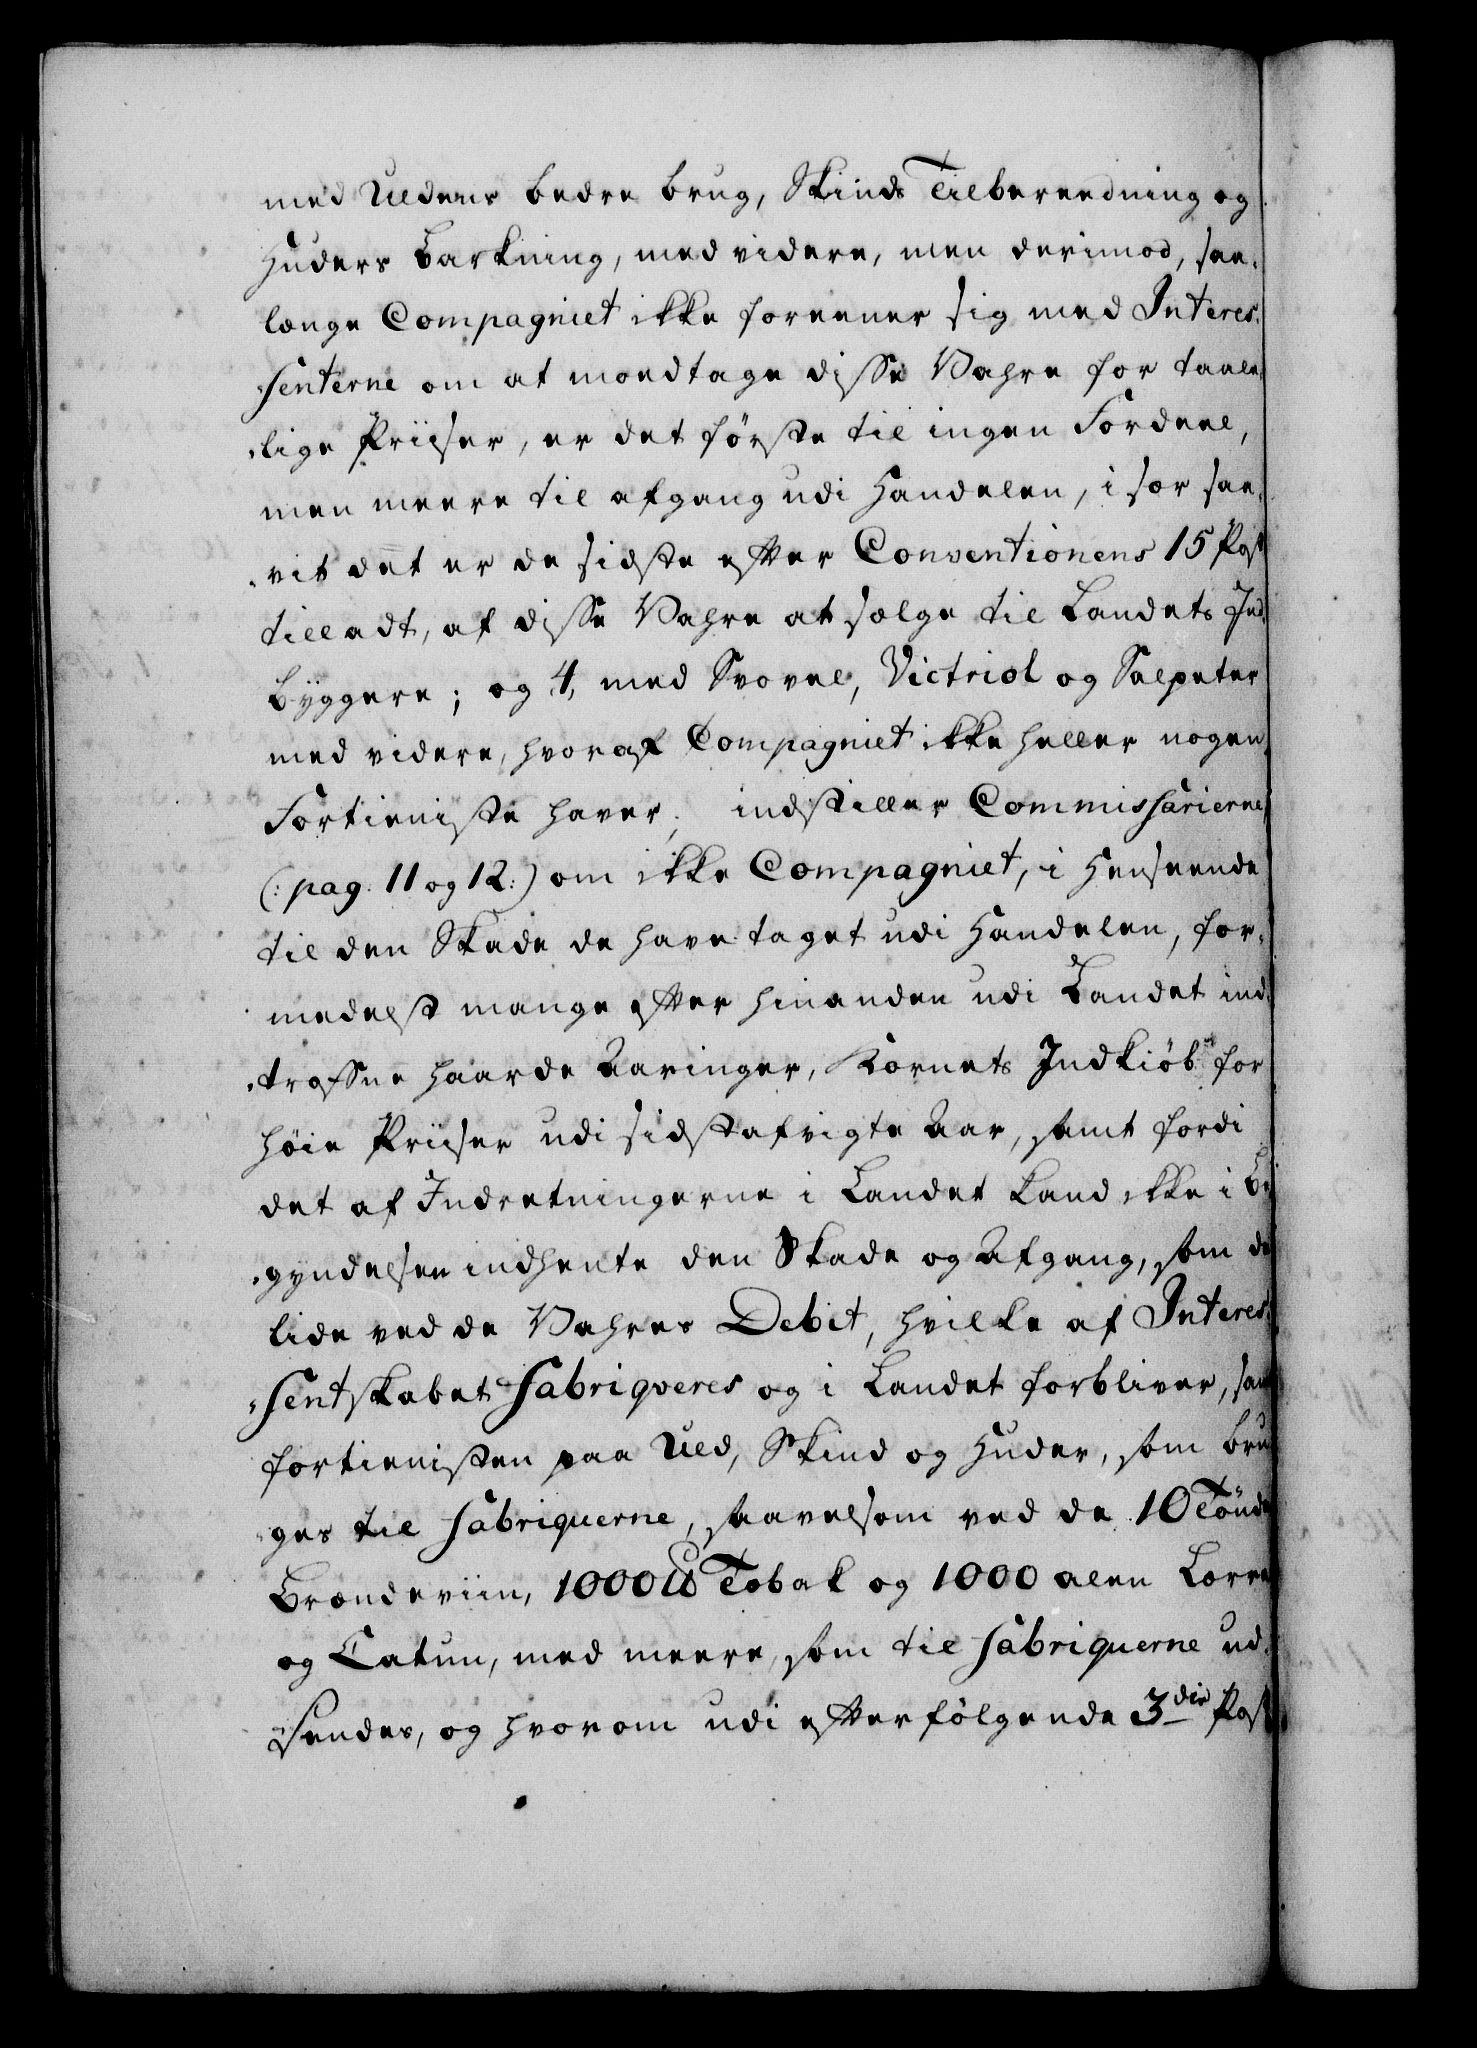 med Uldens bedre brug, Skinds Tilbereedning og
Huders Barkning, med videre, men derimod, saa-
længe Compagniet ikke foreener sig med Interes-
senterne om at modtage disse Vahre for taale-
lige Priiser, er det første til ingen Fordeel,
men meere til afgang udi Handelen, i sær saa-
vit det er de sidste efter Conventionens 15 Post
tilladt, af disse Vahre at sælge til Landets Ind-
byggere; og 4, med Svovel, Victriol og Salpeter
med videre, hvoraf Compagniet ikke heller nogen
Fortieniste haver; indstiller Commissarierne
(: pag. 11 og 12:) om ikke Compagniet, i Henseende
til den Skade de have taget udi Handelen, for-
medelst mange efter hinanden udi Landet ind-
trufne haarde Aaringer, Kornets Indkiøb for
høie Priiser udi sidstafvigte Aar, samt fordi
det af Indretningerne i Landet kand ikke i Be-
gyndelsen indhente den Skade og Afgang, som de
lide ved de Vahres Debit, hvilke af Interes-
sentskabet fabriqveres og i Landet forbliver, samt
fortienisten paa Uld, Skind og Huder, som bru-
ges til fabriquerne, saavelsom ved de 10 Tönder
Brændeviin, 1000 ℔ Tobak og 1000 alen Lærret
og Catun, med meere, som til fabriquerne ud-
sendes, og hvorom udi efterfølgende 3die Post